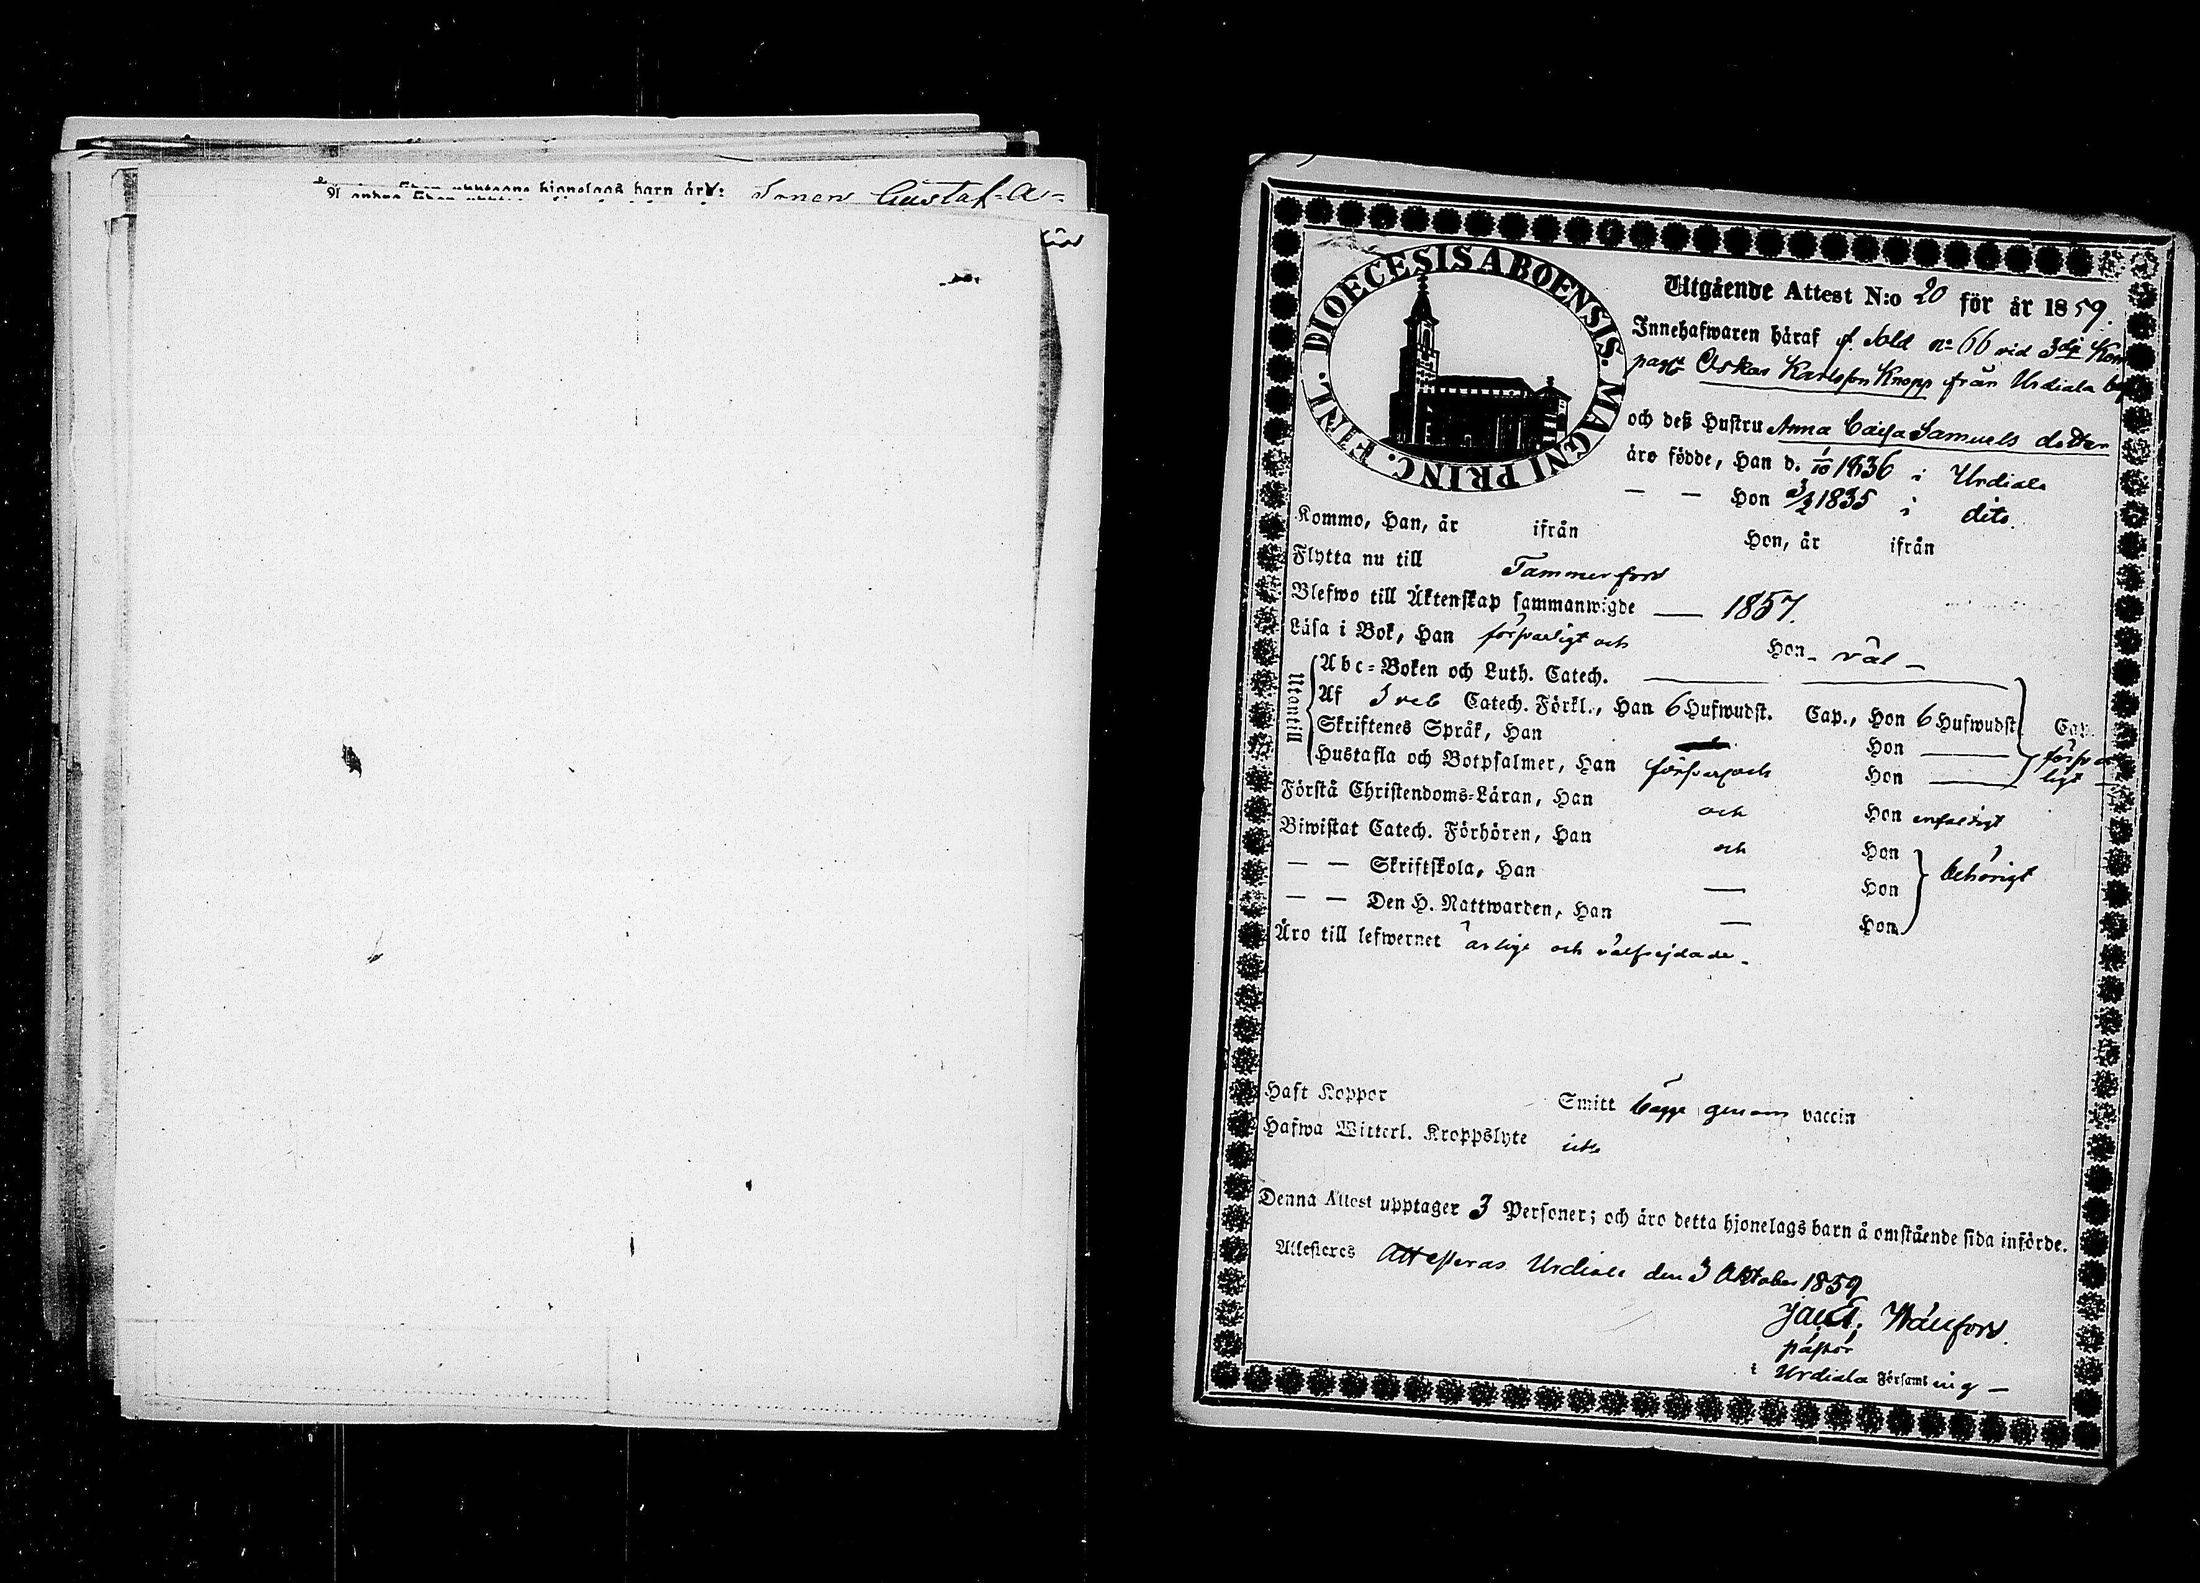 hjonelags barn äro: Sonen Gustaf A-
DIOECESIS ABOENSIS. MAGNI PRINC. FINL.
Utgående Attest N:o 20 för år 1859.
Innehafwaren häraf f. Sold no 66 vid 3dje Kom
pagt Oskar Karlsson Knopp från Urdiala by
och deß Hustru Anna Caija Samuels dotter
äro födde, Han d. 1/10 1836 i Urdiala
— — Hon 3/2 1835 i dito.
Kommo, Han, år ifrån Hon, år ifrån
Flytta nu till Tammerfors
Blefwo till Äktenskap sammanwigde — 1857.
Läsa i Bok, Han försvarligt och Hon - väl -
Utantill
Abc-Boken och Luth. Catech.
Af Catech. Förkl., Han 6 Hufwudst. Cap., Hon 6 Hufwudst. Cap.
Skriftenes Språk, Han Hon — försvar
Hustafla och Botpsalmer, Han försvar och Hon — ligt
Förstå Christendoms-Läran, Han och Hon enfaldigt
Biwistat Catech. Förhören, Han och Hon
— — Skriftskola, Han — Hon behörigt
— — Den H. Nattwarden, Han — Hon
Äro till lefwernet ärlige och välfrejdade.
Haft Koppor Smitt bägge genom vaccin
Hafwa Witterl. Kroppslyte icke
Denna Attest upptager 3 Personer; och äro detta hjonelags barn å omstående sida införde.
Attesteres Attesteras Urdiala den 3 Oktober 1859
Wällfors.
pastor
i Urdiala Församling —